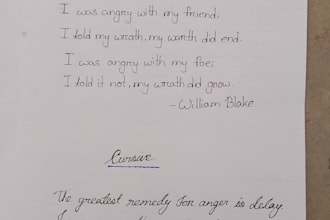 I was angry with my friend;
I told my wrath, my warth did end.
I was angry with my foe;
I told it not, my wrath did grow.
- William Blake
Cursive
The greatest remedy for anger is delay.